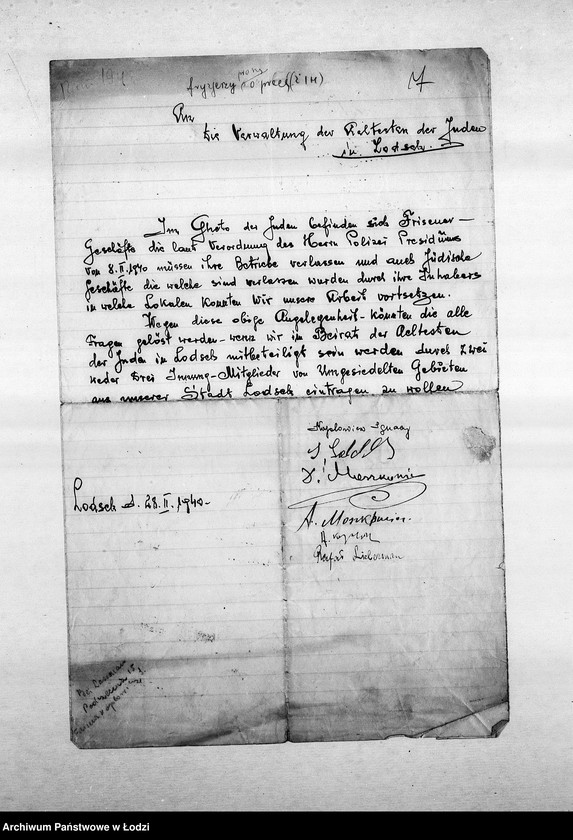 fryzjerzy
17
An
Die Verwaltung der Aeltesten der Juden
in Lodsch.
Im Gheto der Juden befinden sich Friseuer-
Geschäfte die laut Verordnung des Herrn Polizei Presidüms
von 8.II.1940 müssen ihre Betriebe verlassen und auch Jüdische
Geschäfte die welche sind verlassen wurden durch ihre Inhabers
in welche Lokalen konnten Wir unsere Arbeit vortsetzen.
Wegen diese obige Angelegenheit - könnten die alle
Fragen gelöst werden - wenn wir im Beirat der Aeltesten
der Juden in Lodsch mitbeteiligt sein werden durch zwei
oeder Drei Innung-Mitglieder von Umgesiedelten Gebieten
aus unserer Stadt Lodsch eintragen zu wollen
Kaplowicz Ignacy
Lodsch d. 28.II.1940-
A.
Rafał Liberman
Archiwum Państwowe w Łodzi